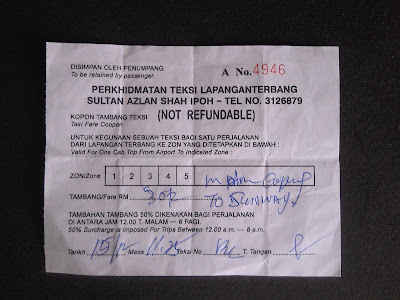 DISIMPAN OLEH PENUMPANG
To be retained by passenger.
A No. 4946
PERKHIDMATAN TEKSI LAPANGANTERBANG
SULTAN AZLAN SHAH IPOH – TEL NO. 3126879
KOPON TAMBANG TEKSI (NOT REFUNDABLE)
Taxi Fare Coupon
UNTUK KEGUNAAN SEBUAH TEKSI BAGI SATU PERJALANAN
DARI LAPANGAN TERBANG KE ZON YANG DITETAPKAN DI BAWAH :
Valid For One Cab Trip From Airport To Indicated Zone :
ZON/Zone 1 2 3 4 5
TAMBANG/Fare RM TO SUNWAY
TAMBAHAN TAMBANG 50% DIKENAKAN BAGI PERJALANAN
DI ANTARA JAM 12.00 T. MALAM — 6 PAGI.
50% Surcharge is Imposed For Trips Between 12.00 a.m. — 6 a.m.
Tarikh 15/12 Masa 11.25 Teksi No T. Tangan